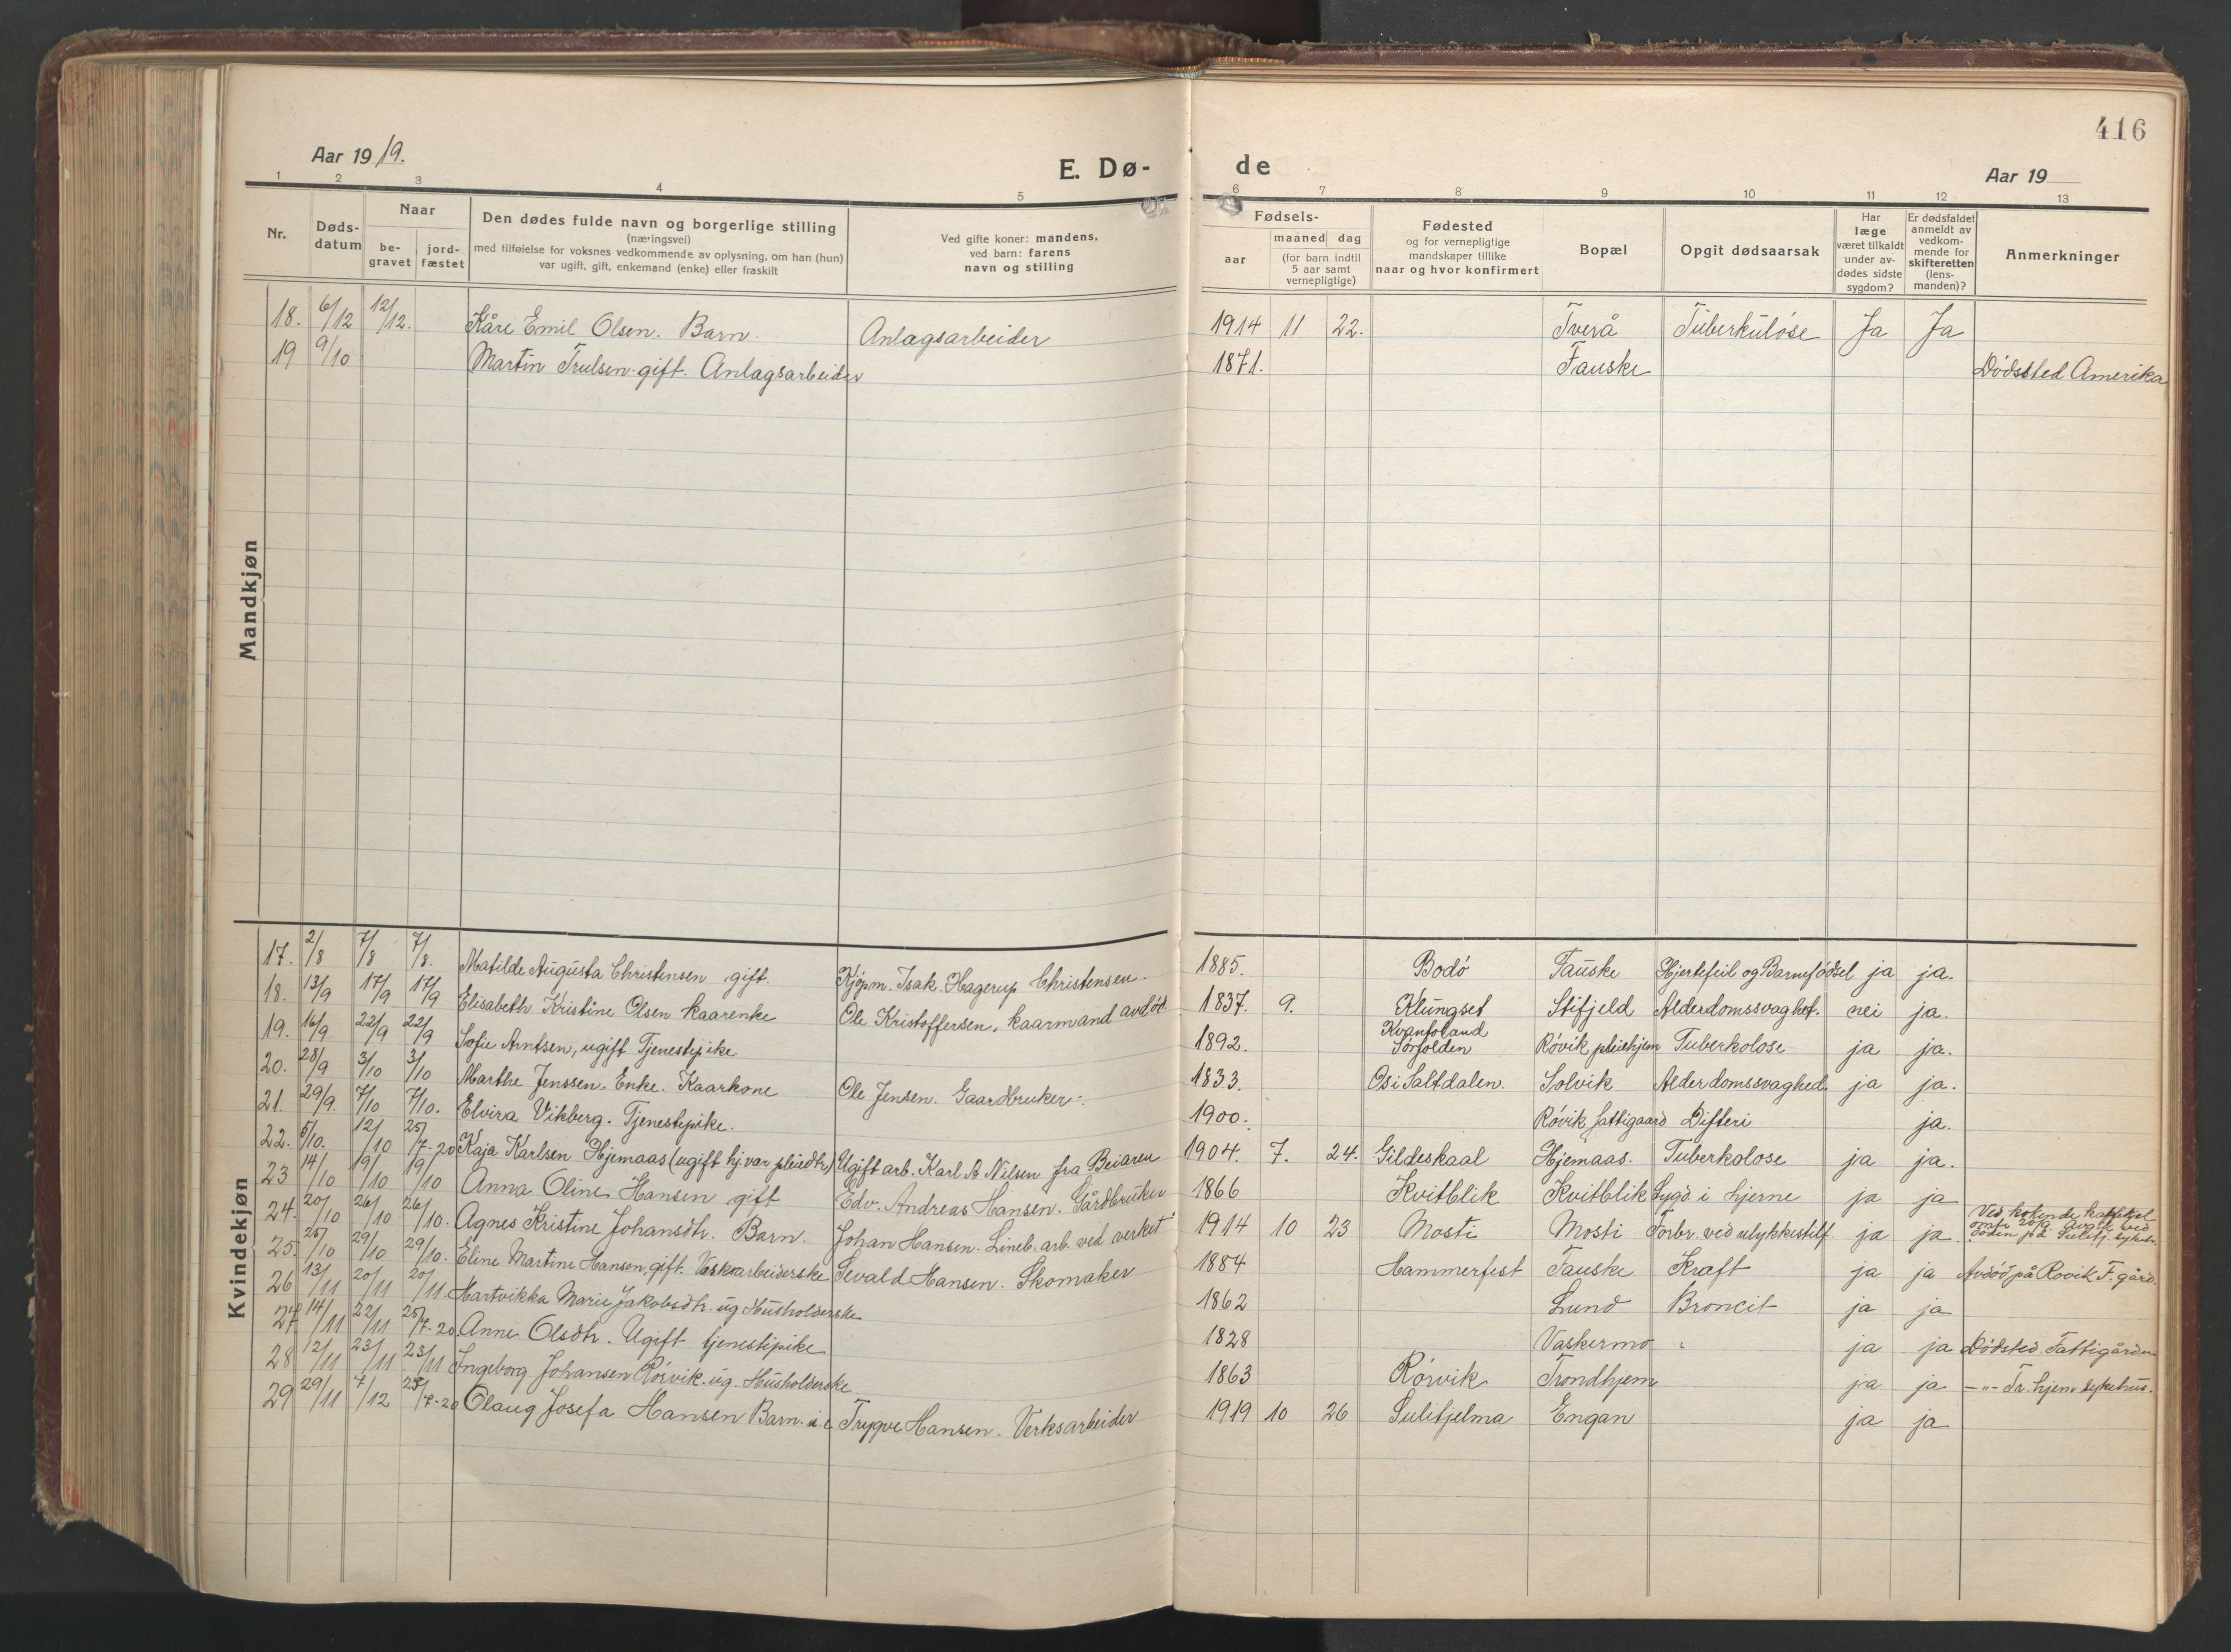 416
Aar 1919.
E. Dø-
de
Aar 19
1 2 3 4 5 6 7 8 9 10 11 12 13
Nr.
Døds-
datum
Naar
be-
gravet
jord-
fæstet
Den dødes fulde navn og borgerlige stilling
(næringsvei)
med tilføielse for voksnes vedkommende av oplysning, om han (hun)
var ugift, gift, enkemand (enke) eller fraskilt
Ved gifte koner: mandens,
ved barn: farens
navn og stilling
Fødsels-
aar
maaned dag
(for barn indtil
5 aar samt
vernepligtige)
Fødested
og for vernepligtige
mandskaper tillike
naar og hvor konfirmert
Bopæl
Opgit dødsaarsak
Har
læge
været tilkaldt
under av-
dødes sidste
sygdom?
Er dødsfaldet
anmeldt av
vedkom-
mende for
skifteretten
(lens-
manden)?
Anmerkninger
Mandkjøn
18. 6/12 12/12. Kåre Emil Olsen. Barn. Anlagsarbeider 1914 11 22. Tverå Tuberkulóse Ja Ja
19 9/10 Martin Trulsen. gift. Anlagsarbeider 1871. Fauske Dódssted Amerika
Kvindekjøn
17. 2/8 7/8 7/8. Matilde Augusta Christensen gift. Kjøpm. Isak. Hagerup Christensen. 1885. Bodó Fauske Hjertefeil og Barnefødsel ja ja.
18. 13/9 17/9 17/9 Elisabeth Kristine Olsen kaarenke Ole Kristoffersen, kaarmand avdød 1837. 9. Klungset Stifjeld Alderdomssvaghet. nei ja.
19. 16/9 22/9 22/9 Sofie Arntsen, ugift Tjenestepike 1892. Kvantoland
Sørfolden Róvik pleiehjem Tuberkolose ja ja.
20. 28/9 3/10 3/10 Marthe Jenssen. Enke. Kaarkone Ole Jensen. Gaardbruker. 1833. Os i Saltdalen. Solvik Alderdomssvaghed. ja ja.
21. 29/9. 7/10 7/10. Elvira Vikberg. Tjenestepike. 1900. Róvik fattigaard Difteri ja.
22. 5/10. 12/10 25/7-20 Kaja Karlsen Hjemaas (ugift hj.var pleiedtr) Ugift arb. Karl A Nilsen fra Beiaren 1904. 7. 24. Gildeskaal Hjemaas. Tuberkolose ja ja.
23 14/10 19/10 19/10 Anna Oline Hansen gift Edv. Andreas Hansen. Gårdbruker 1866 Kvitblik Kvitblik Sygd i hjerne ja ja
24. 20/10 26/10 26/10. Agnes Kristine Johansdtr. Barn. Johan Hansen. Lineb. arb. ved verket 1914 10 23 Mosti Mosti Forbr. ved ulykkestilf. ja ja. Ved kokende
25. 25/10 29/10 29/10. Eline Martine Hansen, gift. Vaskearbeiderske Sevald Hansen. Skomaker 1884 Hammerfest Fauske Kræft ja ja Avdöd på Rovik F. gård.
26 13/11 20/11 20/11. Hartvikka Marie Jakobsdtr. ug Husholderske 1862 Lund Broncit ja ja
27 14/11 22/11 25/7-20. Anne Olsdtr. Ugift tjenestepike 1828 Vaskermo " ja ja Dódsted. Fattigården
28 12/11 23/11 23/11 Ingeborg Johansen Rórvik. ug. Husholderske 1863 Rórvik Trondhjem ja ja —"— Tr. hjem sykehus.
29 29/11 7/12 25/7-20 Olaug Josefa Hansen Barn. i e Trygve Hansen. Verksarbeider 1919 10 26 Sulitjelma Engan ja ja